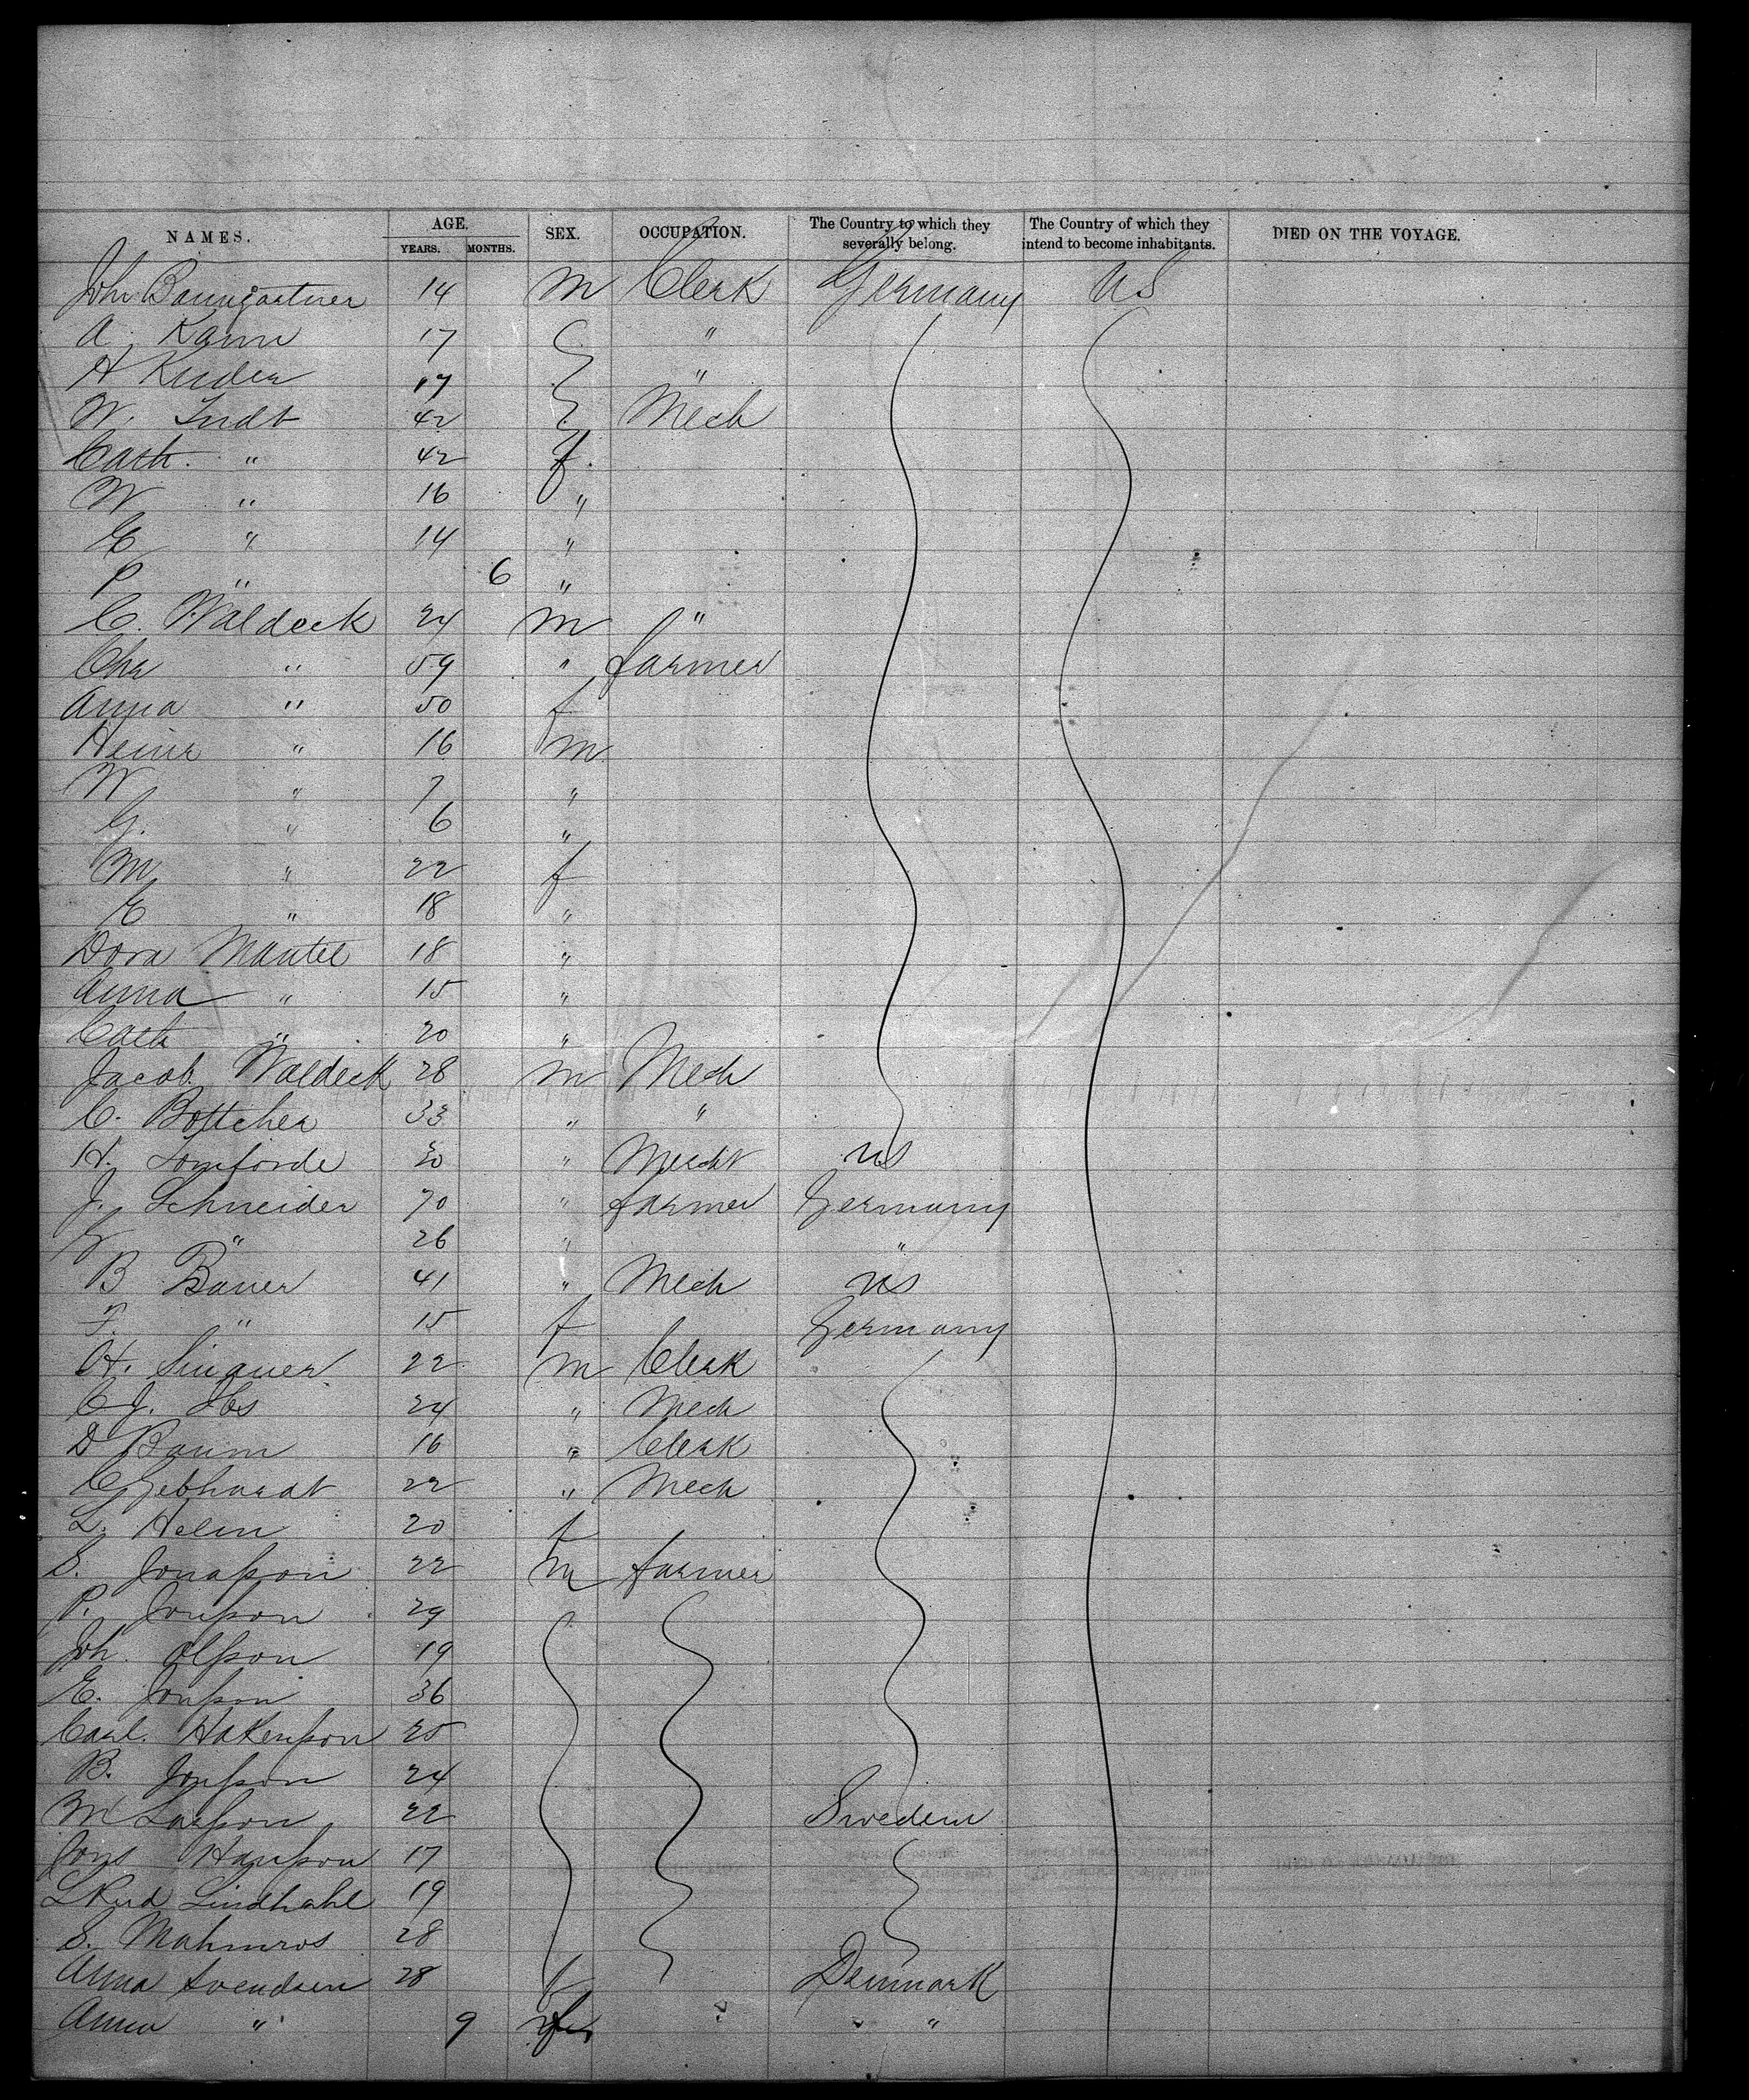 NAMES. AGE. YEARS. MONTHS. SEX. OCCUPATION. The Country to which they severally belong. The Country of which they intend to become inhabitants. DIED ON THE VOYAGE.
John Baumgartner 14 m Clerk Germany US
A. Kann 17 "
H Kuder 17 "
W. Indt 42 Mech
Cath. " 42 f.
W " 16 "
E " 14 "
P " 6 "
C. Waldeck 24 m "
Chr " 59 " farmer
Anna " 50 f
Heinr " 16 m
W " 7 "
G. " 6 "
M " 22 f
E " 18 "
Dora Mantel 18 "
Anna " 15 "
Cath " 20 "
Jacob Waldeck 28 m Mech
C. Bottcher 33 " "
H. Lomforde 30 " Mercht US
J. Schneider 70 " farmer Germany
" 26 " "
B Bauer 41 " Mech US
F. " 15 f Germany
H. Sinauer 22 m Clerk
C J. Ibs 24 " Mech
D Baum 16 " Clerk
C Gebhardt 22 " Mech
L. Helm 20 f
S. Jonasson 22 m farmer
P. Jonsson 29
Joh. Olsson 19
E. Jonsson 36
Carl. Hakensson 25
B. Jonsson 24
M Larsson 22 Sweden
Jons Hansson 17
Lindhahl 19
S. Mahmros 28
Anna Svendsen 28 f Denmark
Anna " 9 "